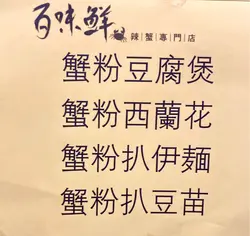 百味鮮
辣蟹專門店
蟹粉豆腐煲
蟹粉西蘭花
蟹粉扒伊麵
蟹粉扒豆苗